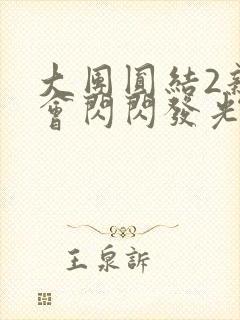 大團圓結2新
會閃閃發光
王泉訴